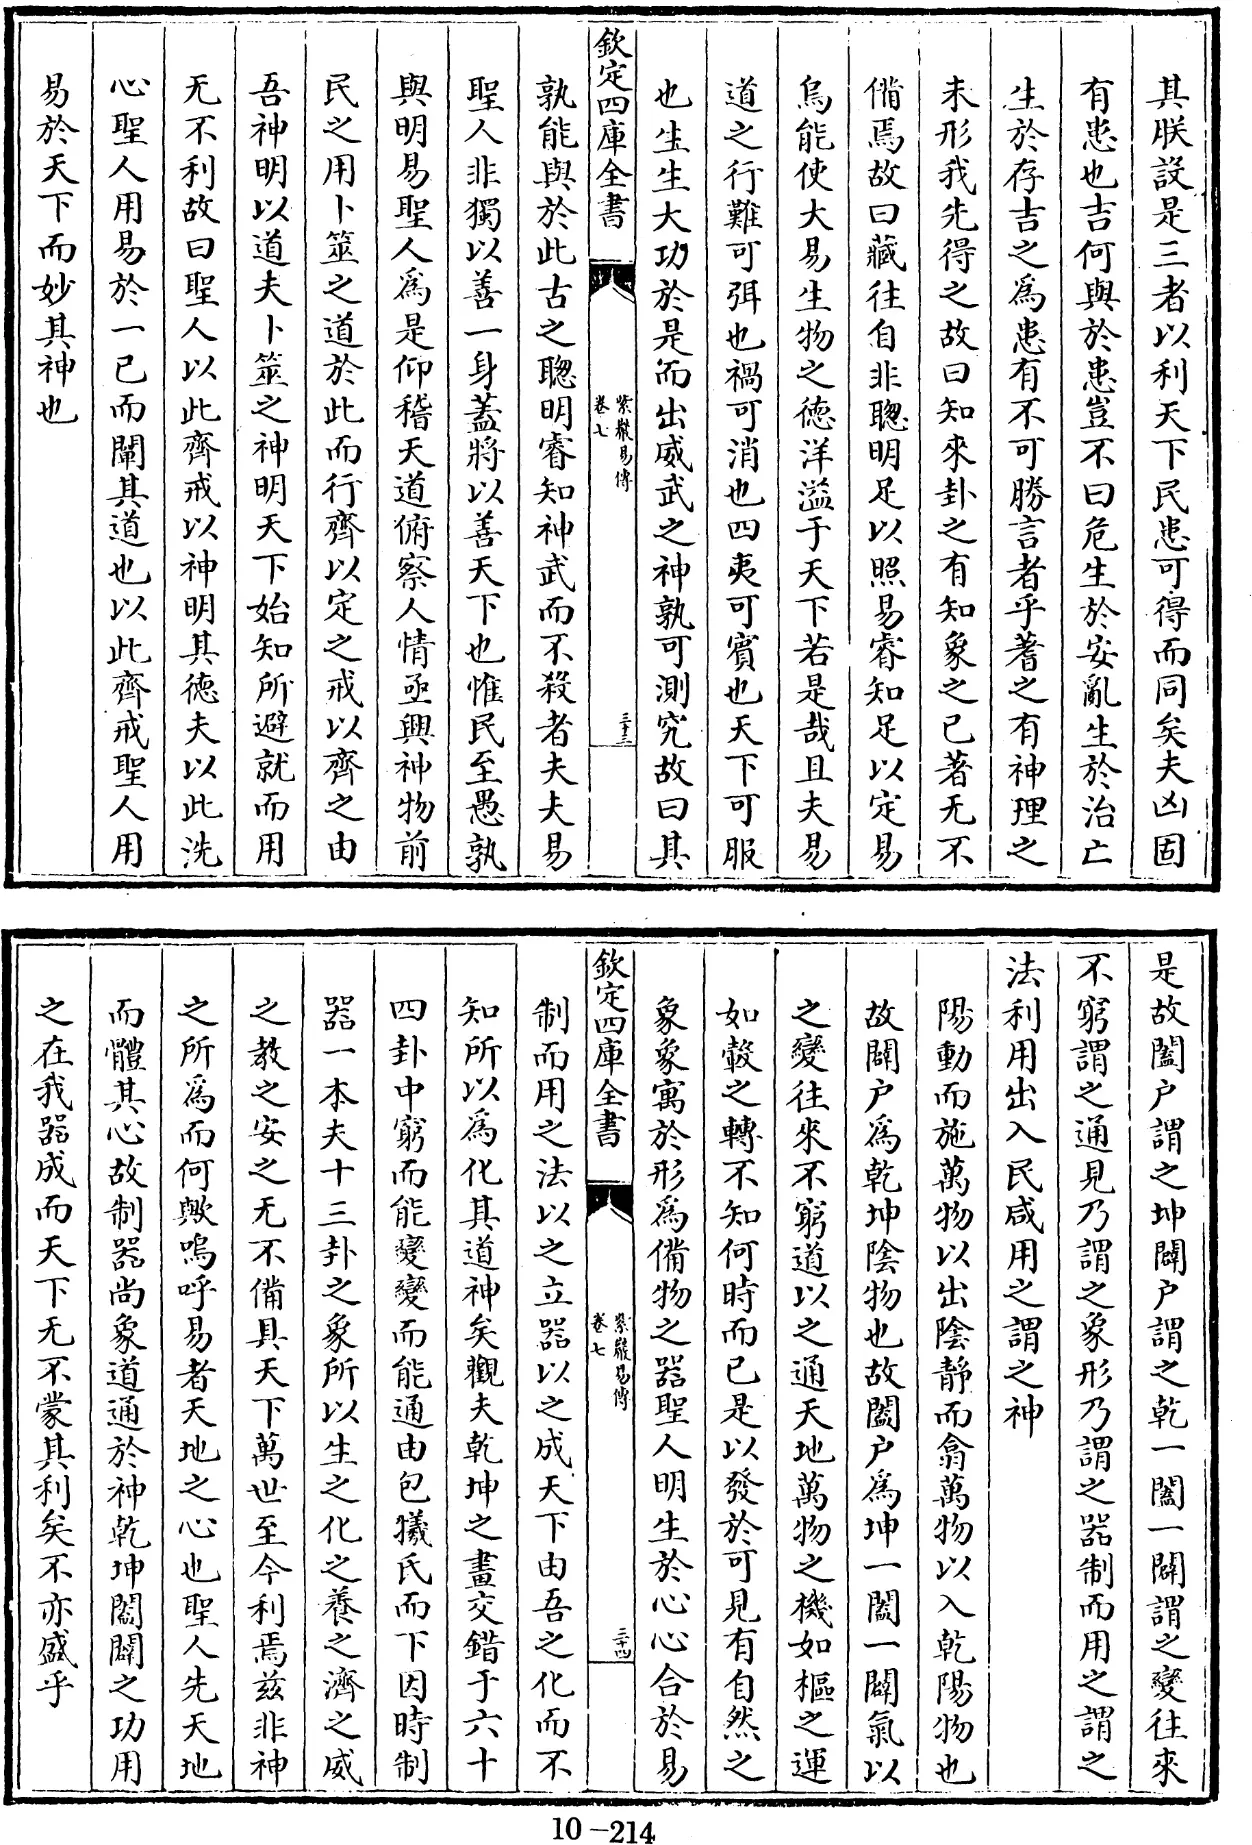 其朕設是三者以利天下民患可得而同矣夫凶固
有患也吉何與於患豈不曰危生於安亂生於治亡
生於存吉之爲患有不可勝言者乎蓍之有神理之
未形我先得之故曰知來卦之有知象之已著无不
備焉故曰藏往自非聰明足以照易睿知足以定易
烏能使大易生物之德洋溢于天下若是哉且夫易
道之行難可弭也禍可消也四夷可賓也天下可服
也生生大功於是而出威武之神孰可測究故曰其
欽定四庫全書
紫巖易傳
卷七
三十三
孰能與於此古之聰明睿知神武而不殺者夫夫易
聖人非獨以善一身蓋將以善天下也惟民至愚孰
與明易聖人爲是仰稽天道俯察人情亟興神物前
民之用卜筮之道於此而行齊以定之戒以齊之由
吾神明以道夫卜筮之神明天下始知所避就而用
无不利故曰聖人以此齊戒以神明其德夫以此洗
心聖人用易於一已而闡其道也以此齊戒聖人用
易於天下而妙其神也
是故闔户謂之坤闢户謂之乾一闔一闢謂之變往來
不窮謂之通見乃謂之象形乃謂之器制而用之謂之
法利用出入民咸用之謂之神
陽動而施萬物以出陰靜而翕萬物以入乾陽物也
故闢户爲乾坤陰物也故闔户爲坤一闔一闢氣以
之變往來不窮道以之通天地萬物之機如樞之運
如轂之轉不知何時而已是以發於可見有自然之
象象寓於形爲備物之器聖人明生於心心合於易
欽定四庫全書
紫巖易傳
卷七
三十四
制而用之法以之立器以之成天下由吾之化而不
知所以爲化其道神矣觀夫乾坤之畫交錯于六十
四卦中窮而能變變而能通由包犧氏而下因時制
器一本夫十三卦之象所以生之化之養之濟之威
之教之安之无不備具天下萬世至今利焉兹非神
之所爲而何歟嗚呼易者天地之心也聖人先天地
而體其心故制器尚象道通於神乾坤闔闢之功用
之在我器成而天下无不蒙其利矣不亦盛乎
10-214